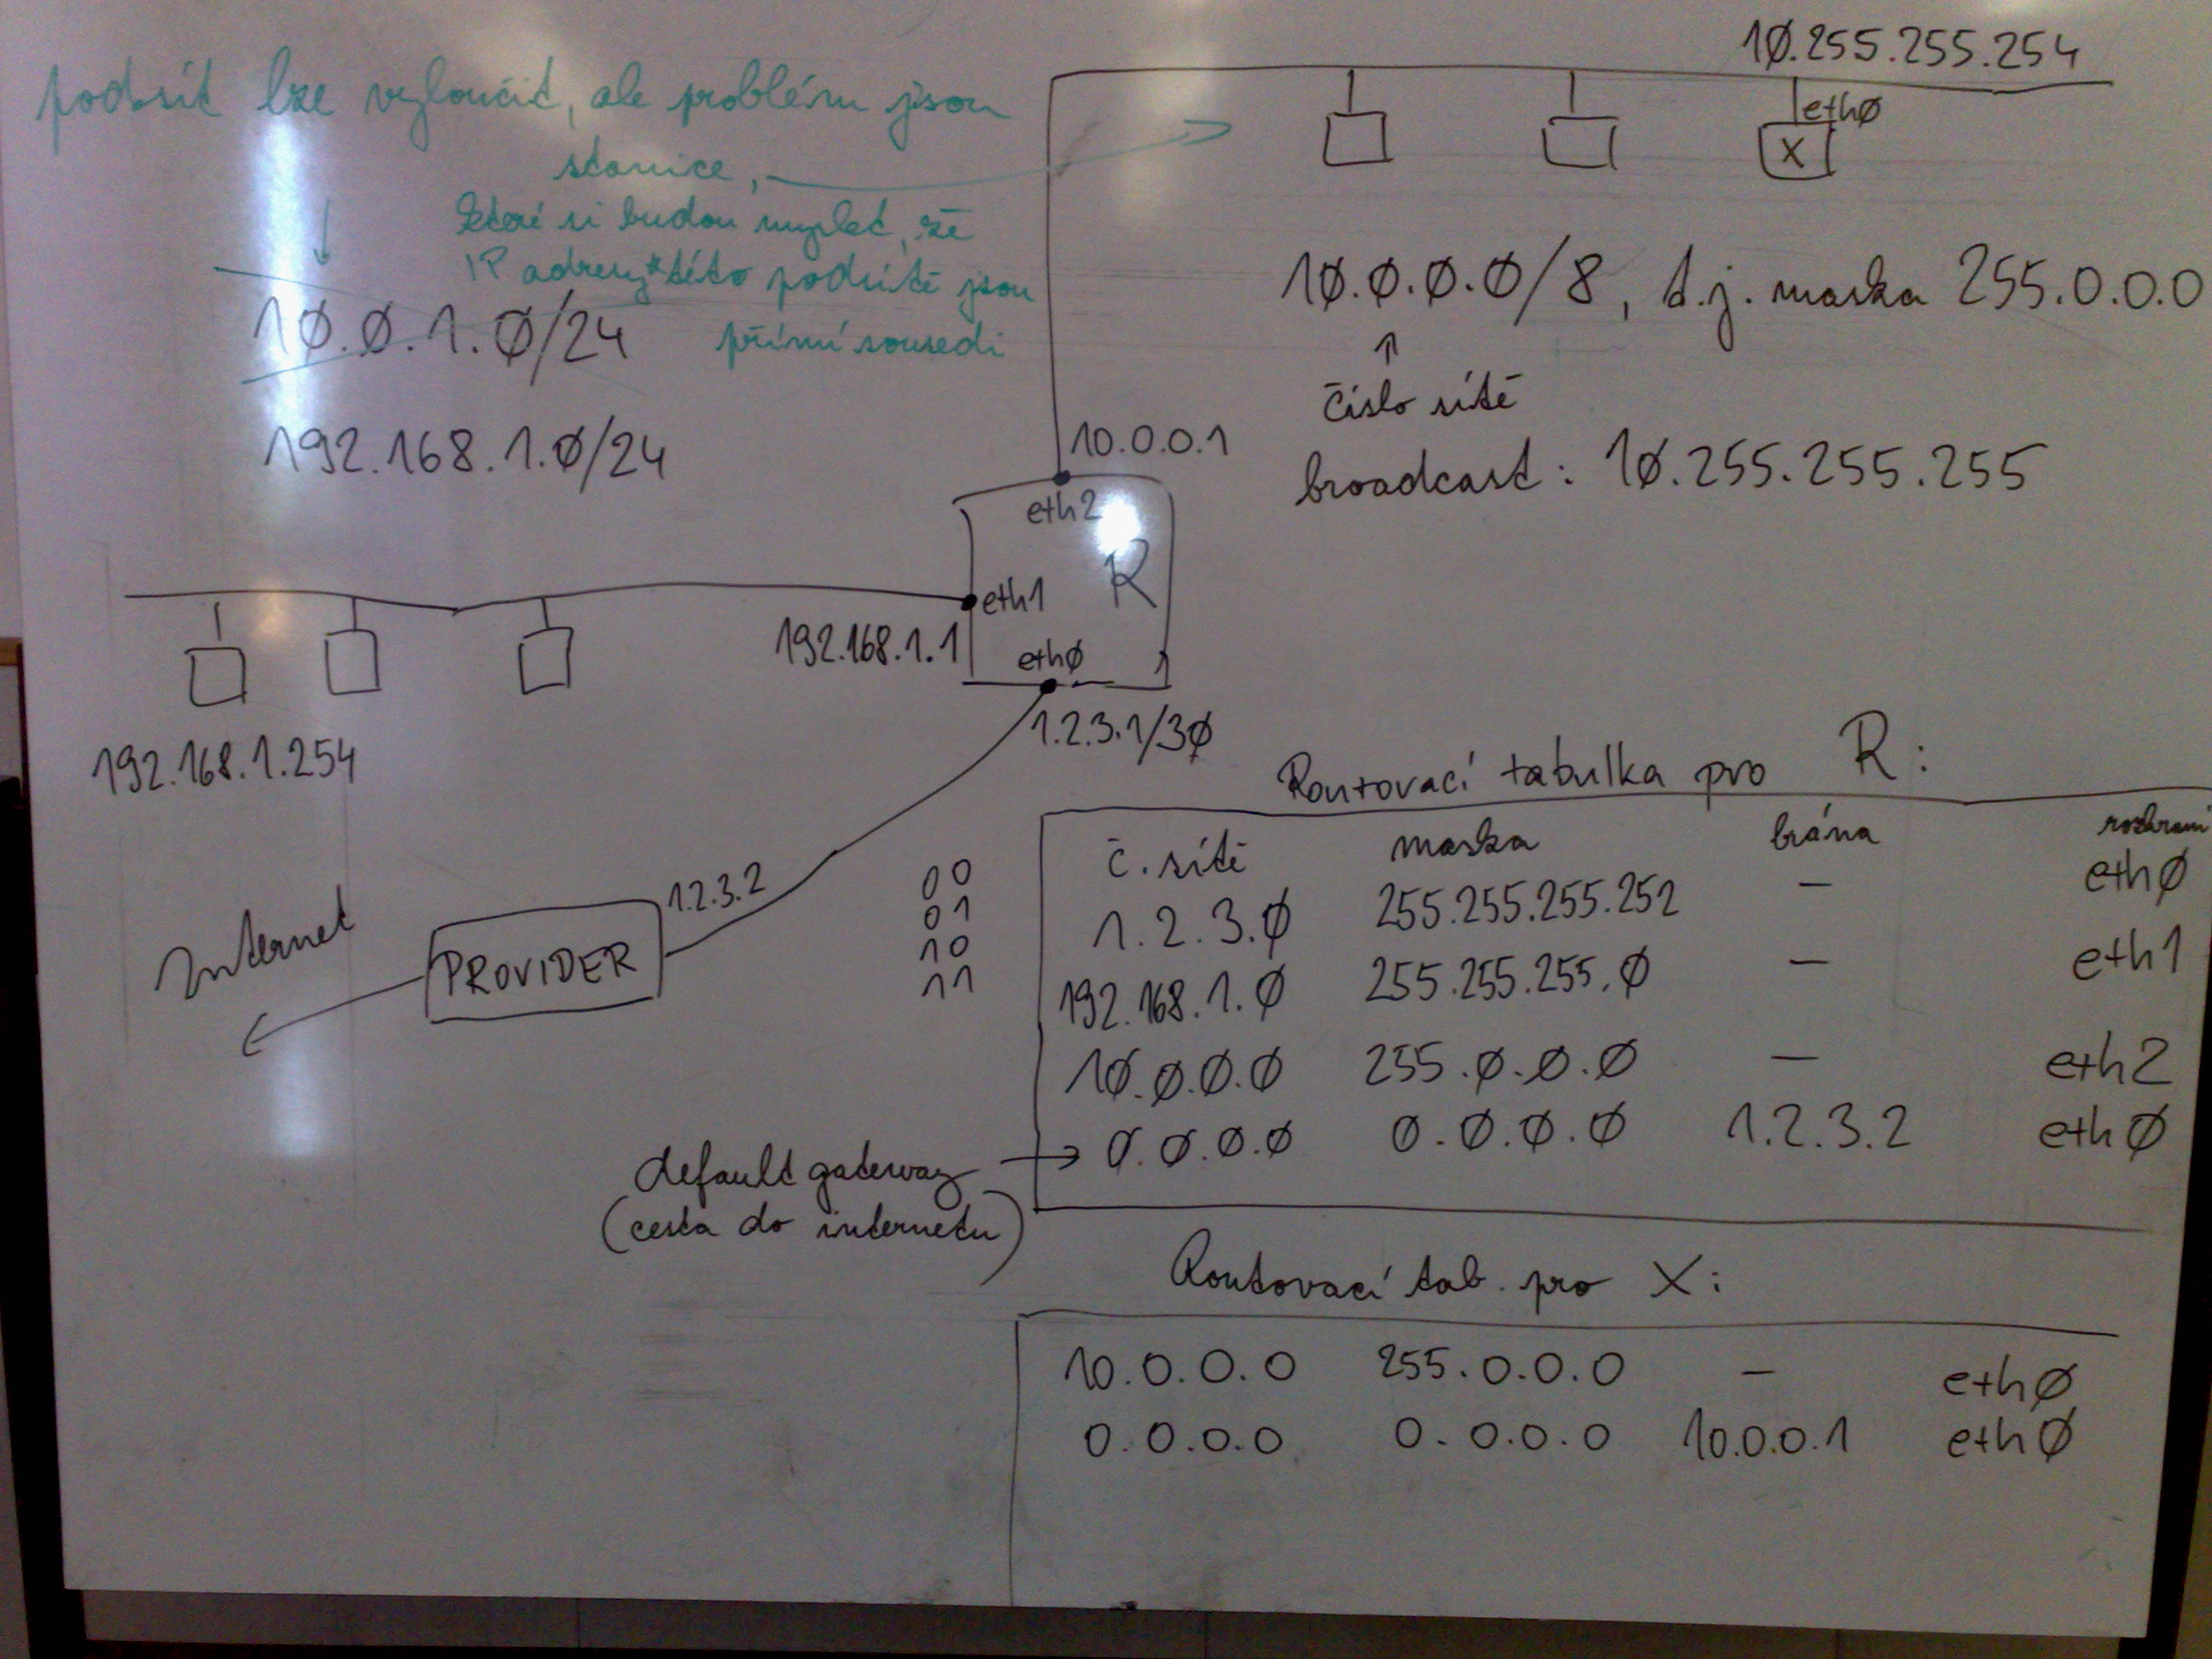 podsíť lze vyloučit, ale problém jsou
stanice,
které si budou myslet, že
IP adresy z této podsítě jsou
přímí sousedi
10.0.1.0/24
192.168.1.0/24
10.255.255.254
eth0
X
10.0.0.0/8, t.j. maska 255.0.0.0
číslo sítě
broadcast: 10.255.255.255
10.0.0.1
eth2
R
eth1
192.168.1.1
eth0
1.2.3.1/30
192.168.1.254
1.2.3.2
PROVIDER
Internet
00
01
10
11
Routovací tabulka pro R:
č. sítě maska brána rozhraní
1.2.3.0 255.255.255.252 — eth0
192.168.1.0 255.255.255.0 — eth1
10.0.0.0 255.0.0.0 — eth2
0.0.0.0 0.0.0.0 1.2.3.2 eth0
default gateway
(cesta do internetu)
Routovací tab. pro X:
10.0.0.0 255.0.0.0 — eth0
0.0.0.0 0.0.0.0 10.0.0.1 eth0